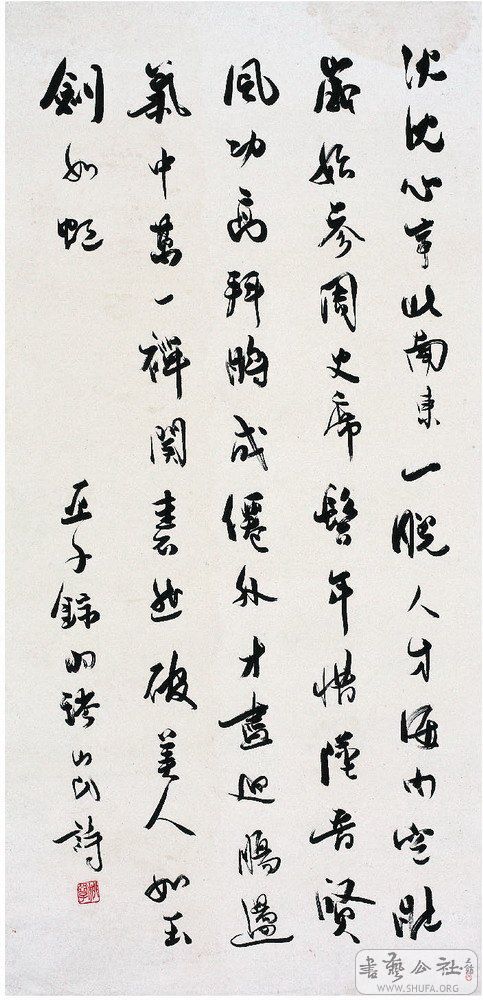 沈沈心事北南東一睨人才海内空壯
歲始參周史席髫年惜墮晉賢
風功高拜將成僊外才盡迴腸盪
氣中萬一禪関砉然破美人如玉
劍如虹
亞子錄羽琌山民詩
書藝公社
WWW.SHUFA.ORG